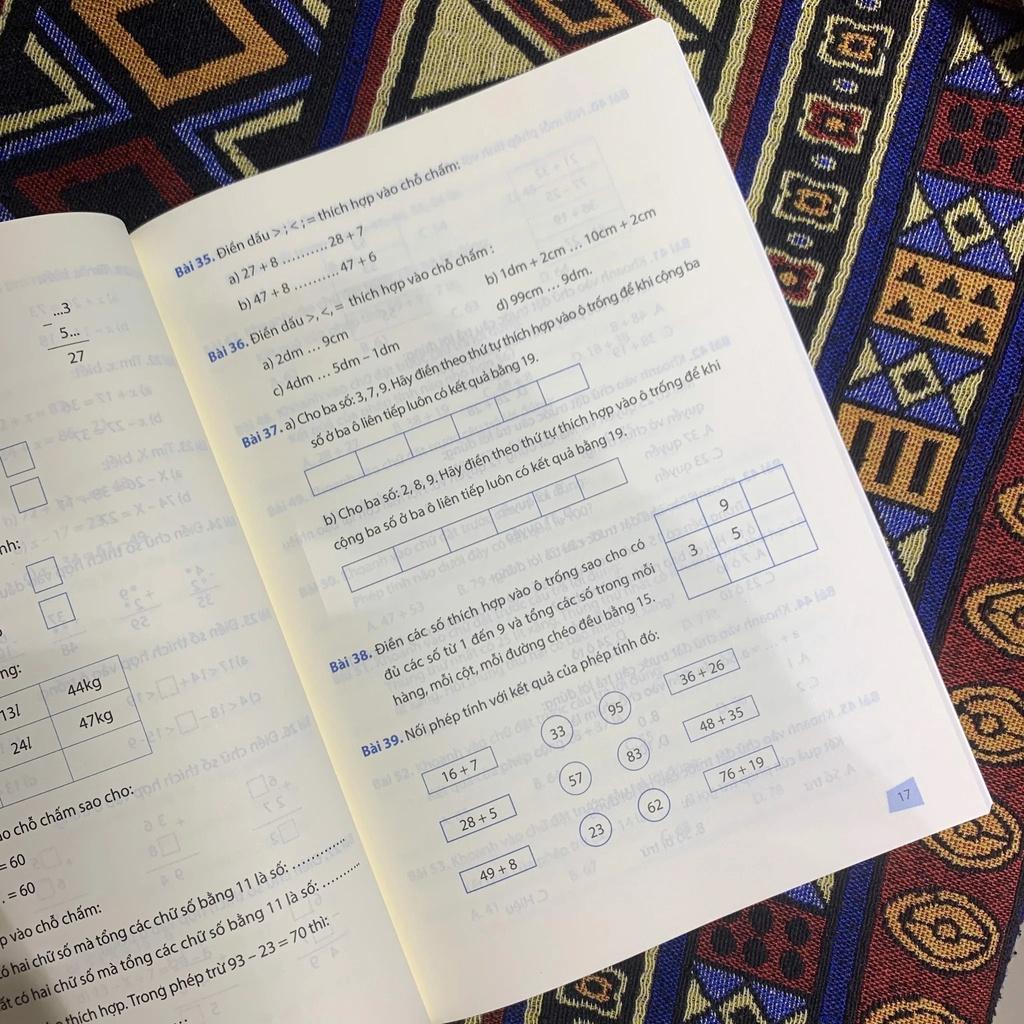 ...3
−
5...
27
ình:
ng:
13l 44kg
24l 47kg
ào chỗ chấm sao cho:
= 60
. = 60
p vào chỗ chấm:
có hai chữ số mà tổng các chữ số bằng 11 là số: ............
ất có hai chữ số mà tổng các chữ số bằng 11 là số: ..........
thích hợp. Trong phép trừ 93 − 23 = 70 thì:
Bài 35. Điền dấu > ; < ; = thích hợp vào chỗ chấm:
a) 27 + 8 ........... 28 + 7
b) 47 + 8 ........... 47 + 6
Bài 36. Điền dấu >, <, = thích hợp vào chỗ chấm :
a) 2dm ... 9cm b) 1dm + 2cm ... 10cm + 2cm
c) 4dm ... 5dm − 1dm d) 99cm ... 9dm.
Bài 37. a) Cho ba số: 3, 7, 9. Hãy điền theo thứ tự thích hợp vào ô trống để khi cộng ba
số ở ba ô liên tiếp luôn có kết quả bằng 19.
b) Cho ba số: 2, 8, 9. Hãy điền theo thứ tự thích hợp vào ô trống để khi
cộng ba số ở ba ô liên tiếp luôn có kết quả bằng 19.
Bài 38. Điền các số thích hợp vào ô trống sao cho có
đủ các số từ 1 đến 9 và tổng các số trong mỗi
hàng, mỗi cột, mỗi đường chéo đều bằng 15.
9
3 5
Bài 39. Nối phép tính với kết quả của phép tính đó:
16 + 7 33 95 36 + 26
28 + 5 57 83 48 + 35
49 + 8 23 62 76 + 19
17